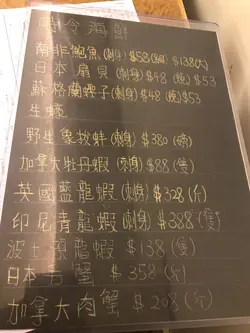 時令海鮮
南非鮑魚(刺身)$58(細)$138(大)
日本扇貝(刺身)$48(燒)$53
蘇格蘭蟶子(刺身)$48(燒)$53
生蠔
野生象拔蚌(刺身)$380(磅)
加拿大牡丹蝦(刺身)$88(隻)
英國藍龍蝦(刺身)$328(斤)
印尼青龍蝦(刺身)$388(隻)
波士頓龍蝦 $138(隻)
日本毛蟹 $358(斤)
加拿大肉蟹 $208(斤)